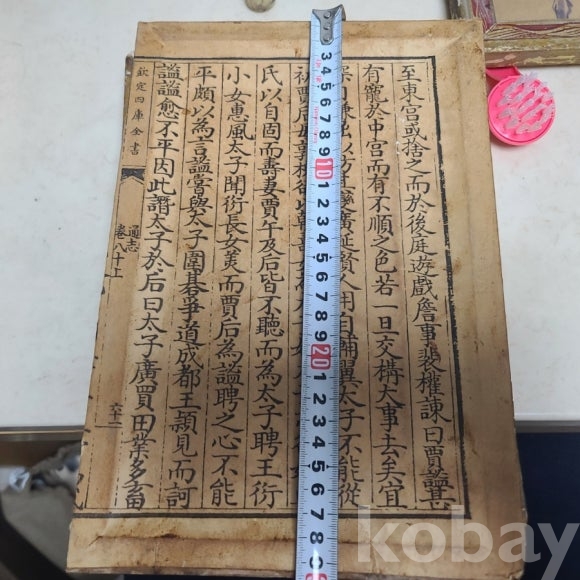 至東宮或捨之而於後庭遊戲詹事裴權諫曰賈謐甚
有寵於中宮而有不順之色若一旦交構大事去矣宜
廣延賢人用自輔翼太子不能從
初賈后母郭槐欲以韓壽
氏以自固而壽妻賈午及后皆不聽而為太子聘王衍
小女惠風太子聞衍長女美而賈后為謐聘之心不能
平頗以為言謐嘗與太子圍棊爭道成都王穎見而訶
謐謐愈不平因此譖太子於后曰太子廣買田業多畜
欽定四庫全書
通志
卷八十上
3 4 5 6 7 8 9 10 1 2 3 4 5 6 7 8 9 20 1 2 3 4 5 6 7 8
kobay